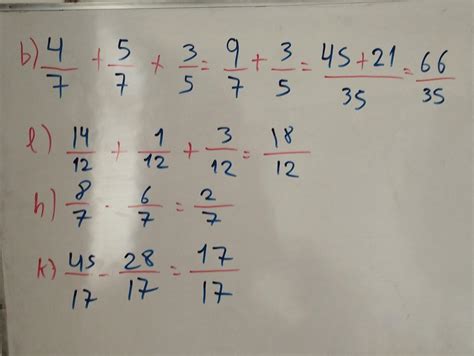 b) 4/7 + 5/7 + 3/5 = 9/7 + 3/5 = 45+21/35 = 66/35
e) 14/12 + 1/12 + 3/12 = 18/12
h) 8/7 - 6/7 = 2/7
k) 45/17 - 28/17 = 17/17